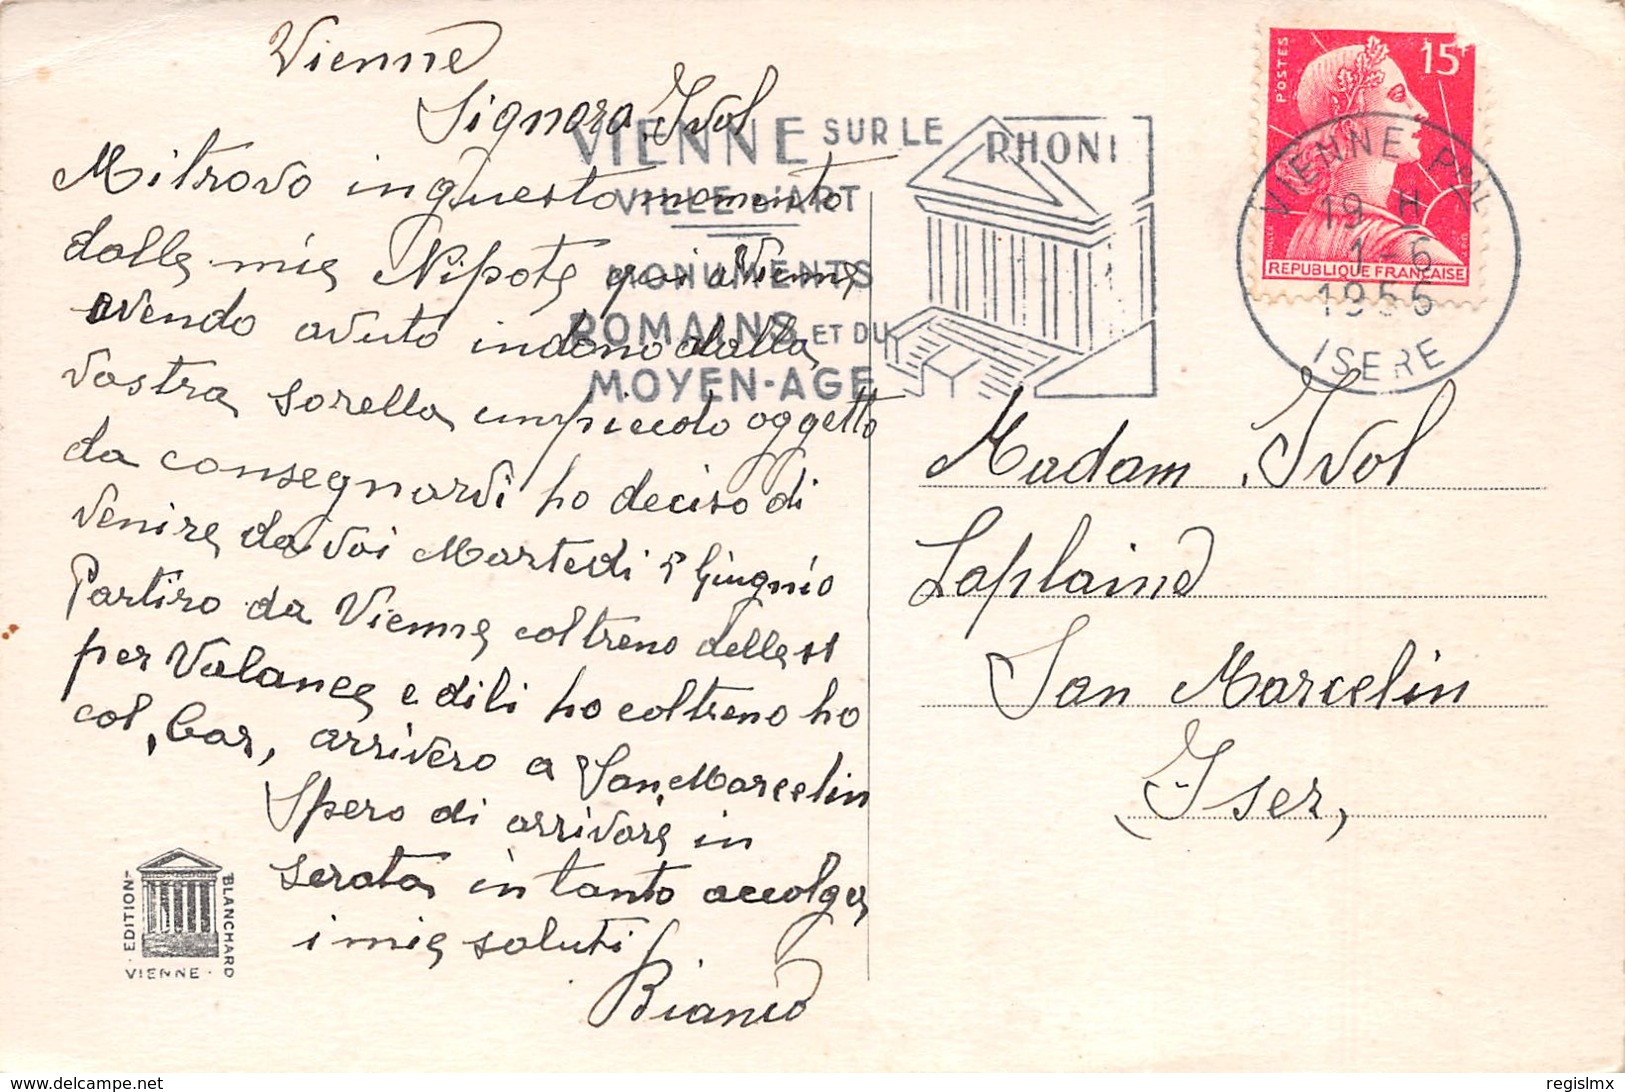 Vienne
Signora Ivol
Mi trovo in questo momento
dalla mia Nipote qui a Vienne
avendo avuto indono dalla
vostra sorella un piccolo oggetto
da consegnarvi ho deciso di
venire da voi Martedi Giugnio
Partiro da Vienne col treno delle 11
per Valance e di li ho col treno ho
col, Car, arrivero a San Marcelin
Spero di arrivare in
serata in tanto accolga
i mie saluti
Bianco
VIENNE SUR LE RHONE
VILLE D'ART
MONUMENTS
ROMAINS ET DU
MOYEN-AGE
POSTES
15F
REPUBLIQUE FRANÇAISE
VIENNE PPAL
19 H
1-6
1955
ISERE
Madam Ivol
Laplaine
San Marcelin
(Iser,
EDITION BLANCHARD
VIENNE
delcampe.net
regislmx